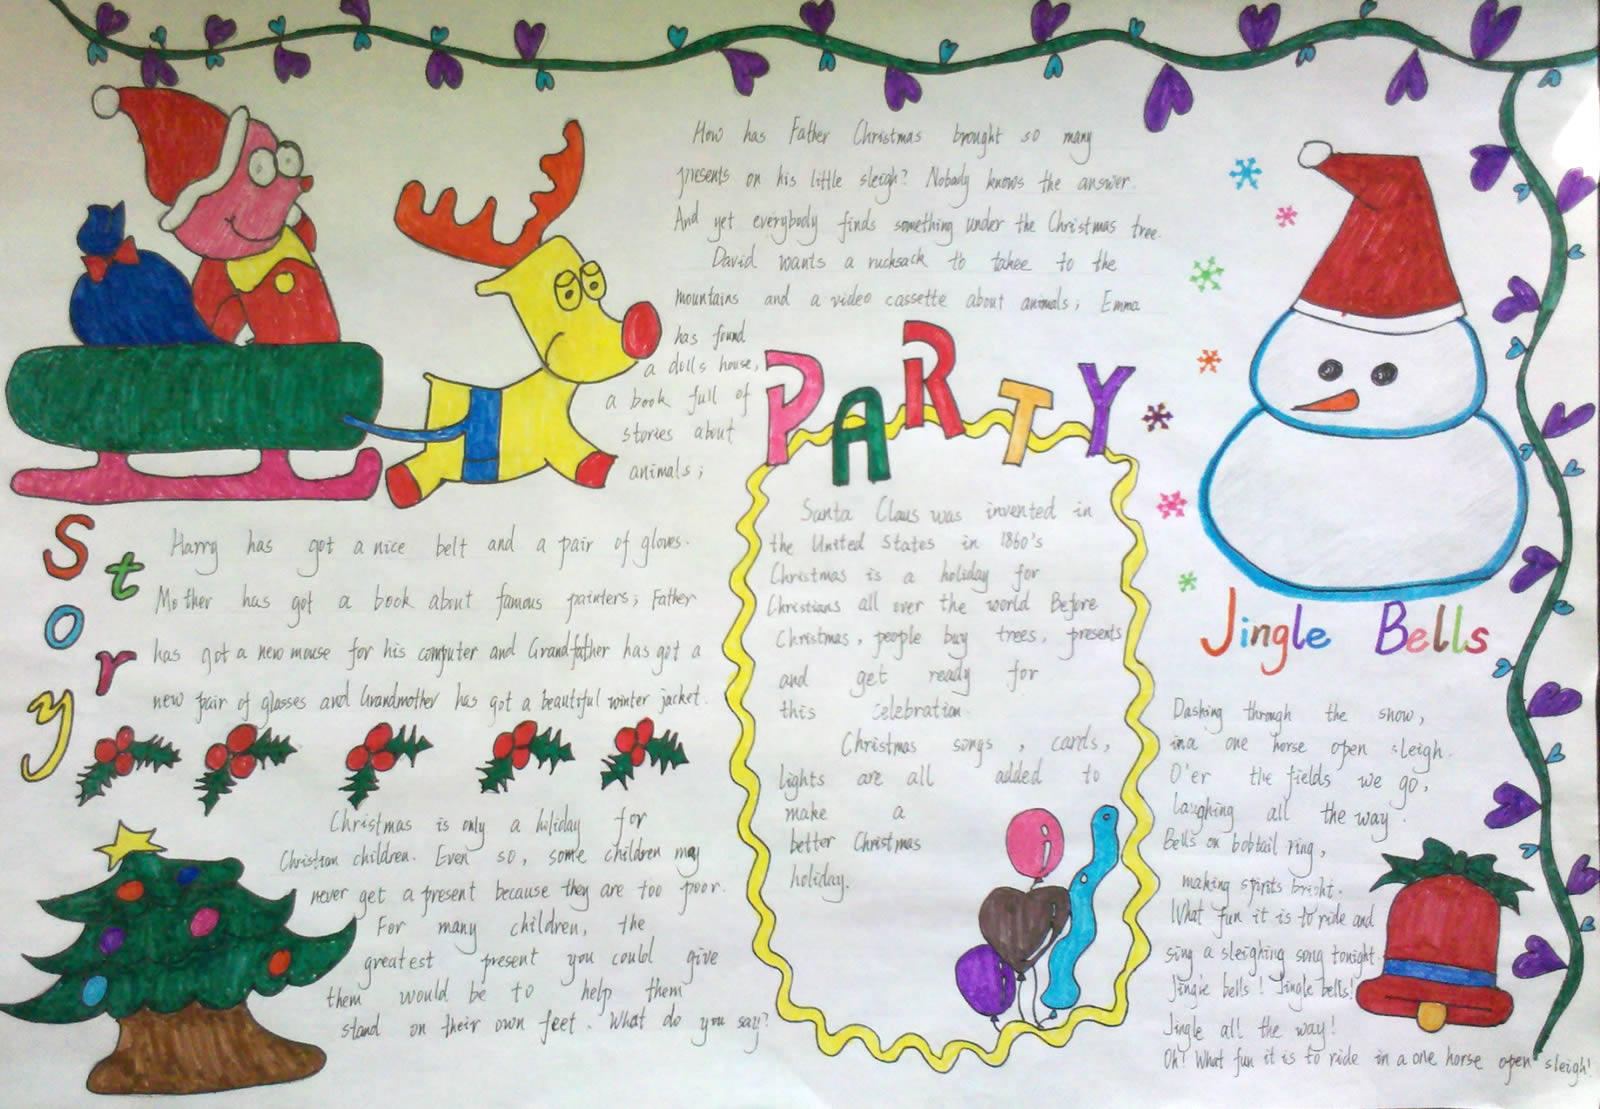 How has Father Christmas brought so many
presents on his little sleigh? Nobody knows the answer.
And yet everybody finds something under the Christmas tree.
David wants a rucksack to takee to the
mountains and a video cassette about animals; Emma
has found
a dolls house,
a book full of
stories about
animals;
Story
Harry has got a nice belt and a pair of gloves.
Mother has got a book about famous painters; Father
has got a new mouse for his computer and Grandfather has got a
new pair of glasses and Grandmother has got a beautiful winter jacket.
Christmas is only a holiday for
Christian children. Even so, some children may
never get a present because they are too poor.
For many children, the
greatest present you could give
them would be to help them
stand on their own feet. What do you say?
PARTY
Santa Claus was invented in
the United States in 1860's
Christmas is a holiday for
Christians all over the world Before
Christmas, people buy trees, presents
and get ready for
this celebration.
Christmas songs, cards,
lights are all added to
make a
better Christmas
holiday.
Jingle Bells
Dashing through the snow,
ina one horse open sleigh.
O'er the fields we go,
laughing all the way.
Bells on bobtail ring,
making spirits bright.
What fun it is to ride and
sing a sleighing song tonight.
Jingle bells! Jingle bells!
Jingle all the way!
Oh! What fun it is to ride in a one horse open sleigh!